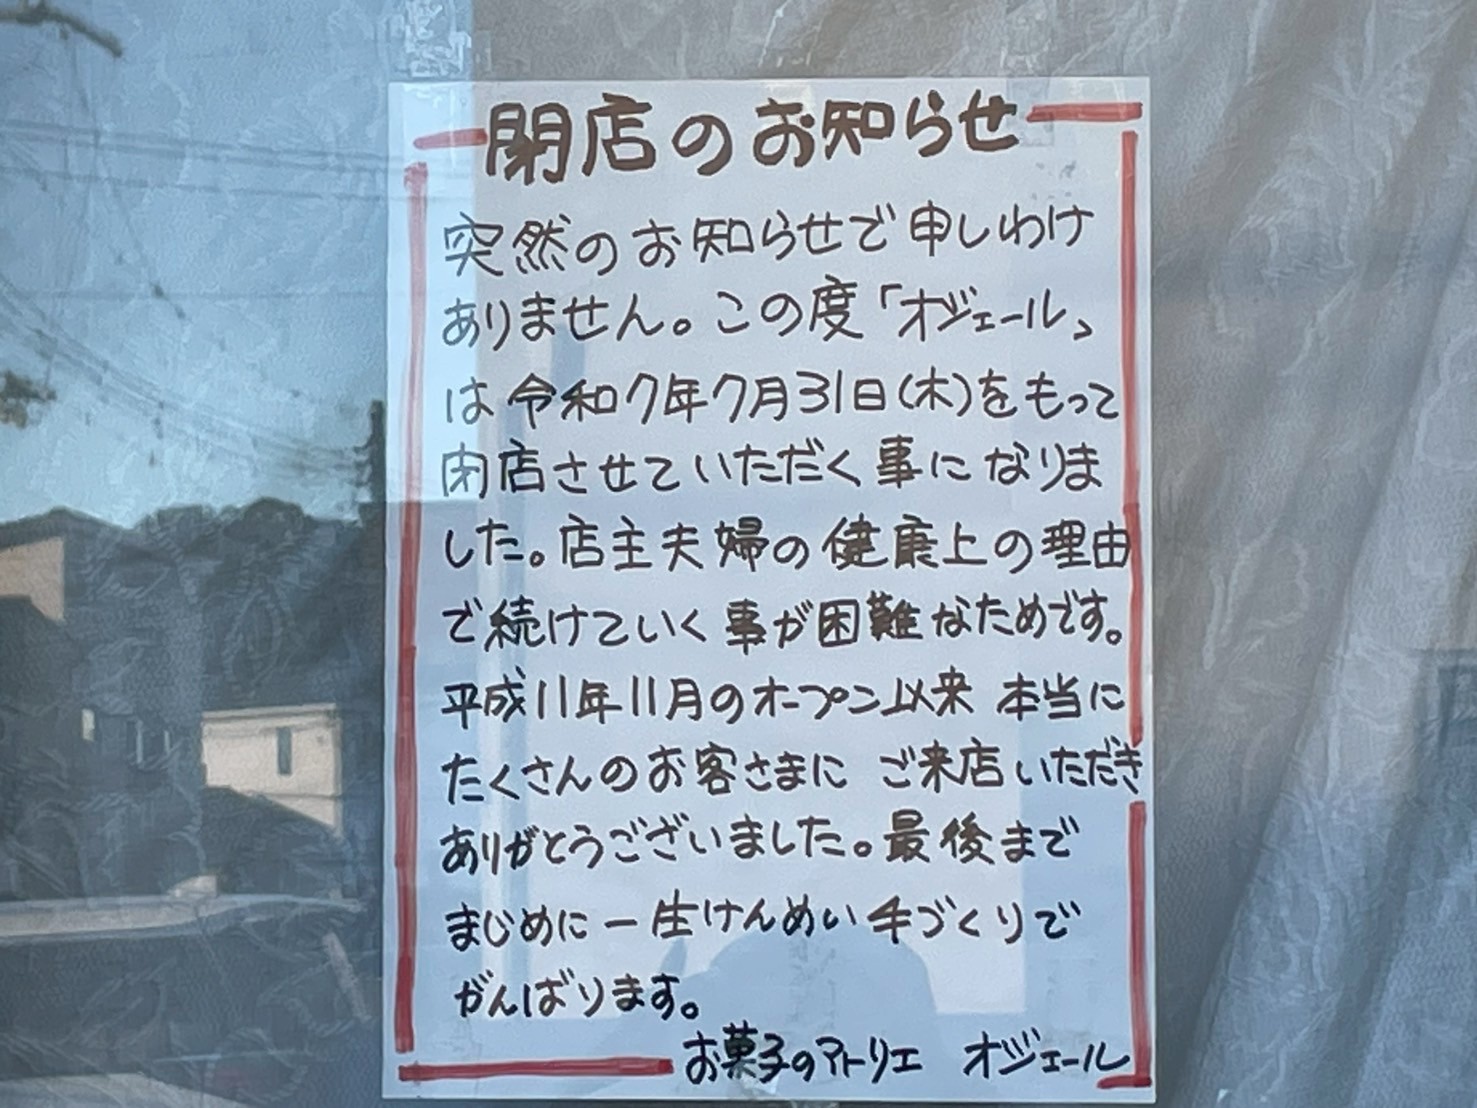 閉店のお知らせ
突然のお知らせで申しわけ
ありません。この度「オジェール」
は令和7年7月31日(木)をもって
閉店させていただく事になりま
した。店主夫婦の健康上の理由
で続けていく事が困難なためです。
平成11年11月のオープン以来 本当に
たくさんのお客さまに ご来店いただき
ありがとうございました。最後まで
まじめに一生けんめい手づくりで
がんばります。
お菓子のアトリエ オジェール